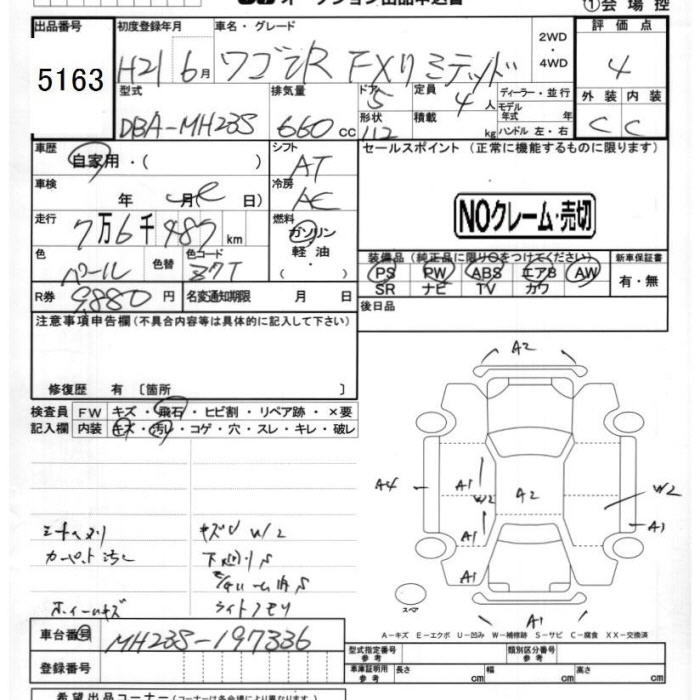 オークション出品申込書
①会場控
出品番号 初度登録年月 車名・グレード 評価点
5163 H21 6月 ワゴンR FXリミテッド 2WD・4WD 4
型式 排気量 ドア 5 定員 4人 ディーラー・並行 外装 内装
DBA-MH23S 660cc 形状 112 積載 kg モデル年式 年 ハンドル 左・右 C C
車歴 シフト セールスポイント (正常に機能するものに限ります)
自家用・( ) AT
車検 冷房
年 月 日 AC
NOクレーム・売切
走行 燃料
7万6千487km ガソリン
軽油
・( )
色 色替 色コード
パール Z7T
装備品(純正品に限り○をつけてください) 新車保証書
PS PW ABS エアB AW 有・無
SR ナビ TV カワ
R券 9,880円 名変通知期限 月 日 後日品
注意事項申告欄(不具合内容等は具体的に記入して下さい)
修復歴 有 〔箇所 〕
検査員 FW キズ・飛石・ヒビ割・リペア跡・×要
記入欄 内装 キズ・汚レ・コゲ・穴・スレ・キレ・破レ
A2
A4 A1 W2 A2 W2
A1 A1
A1
A1
キズU W2
カーペット汚レ 下廻りS
ホイールキズ ライトクモリ
スペア
A-キズ E-エクボ U-凹み W-補修跡 S-サビ C-腐食 XX-交換済
車台番号 MH23S-197336
型式指定番号 参考 類別区分番号 参考
登録番号 車庫証明用 参考 長さ cm 幅 cm 高さ cm
希望出品コーナー(コーナーは各会場により異なります)